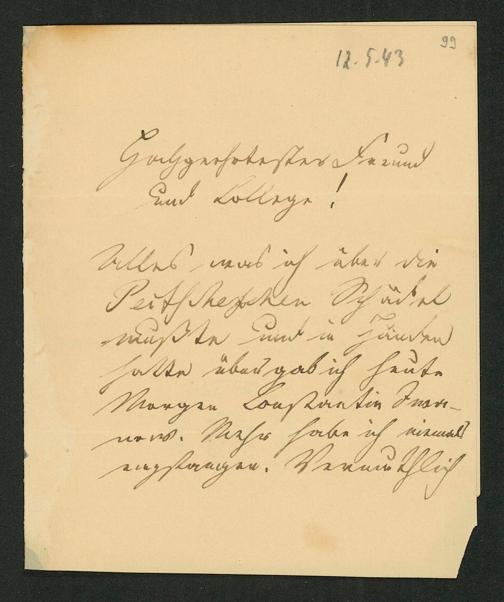 99
12.5.43
Hochgeehrtester Freund
und College!
Alles was ich über die
Schädel
wußte und in Händen
hatte übergab ich heute
Morgen Constantin Iwa-
now. Mehr habe ich niemals
empfangen. Vermuthlich